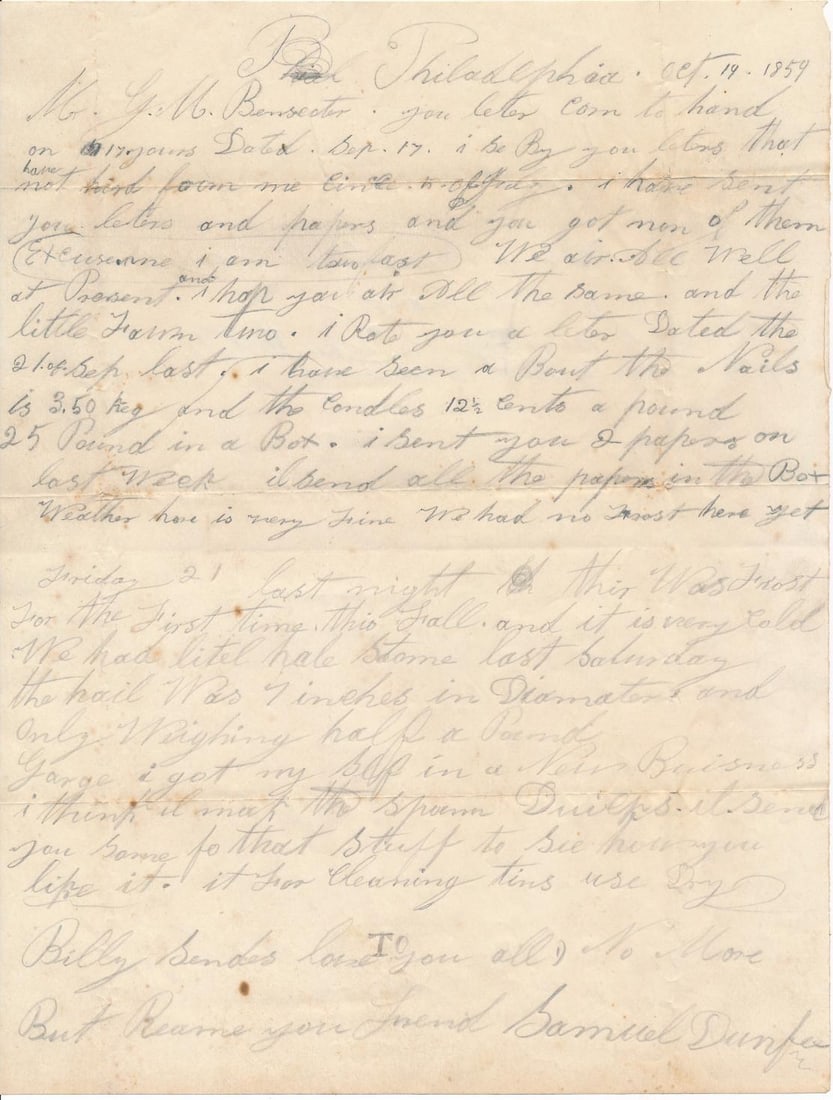 Philadelphia. Oct. 19. 1859
M. G. M. you leter Com to hand
on 17 yours Dated. Sep. 17. i se By you leters that
have not form me Cince. i have sent
you leters and papers and you got non of them
Excuse me i am We air All Well
at Present. and i hop you air All the same. and the
little Fawn two. i Rote you a leter Dated the
21. of. Sep last. i have seen a Bout the Nails
is 3.50 keg and the Condles 12½ Cents a pound
25 Pound in a Box. i sent you 2 papers on
last Week il send all the papers in the Box
Weather hare is very Fine We had no Frost here yet
Friday 21 last night thir Was Frost
For the First time this Fall. and it is very Cold
We had litel hale Stome last Saturday
the hail Was 7 inches in Diamater. and
Only Weighing half a Pound
Garge i got my self in a New Buisness
i think il mak the spann il send
you some fo that stuff to sie how you
like it. it For Cleaning tins use Dry
Billy sendes love TO you all) No More
But Reame you Frend Samuel